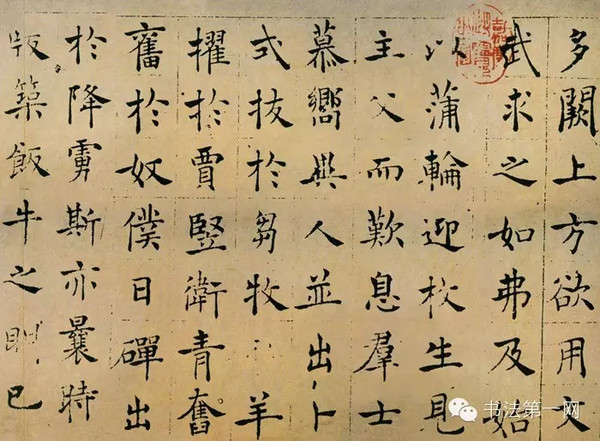 多闕上方欲用文
武求之如弗及始
以蒲輪迎枚生見
主父而歎息羣士
慕嚮異人並出卜
式拔於芻牧羊
擢於賈豎衛青奮
舊於奴僕日磾出
於降虜斯亦曩時
版築飯牛之已
书法第一网